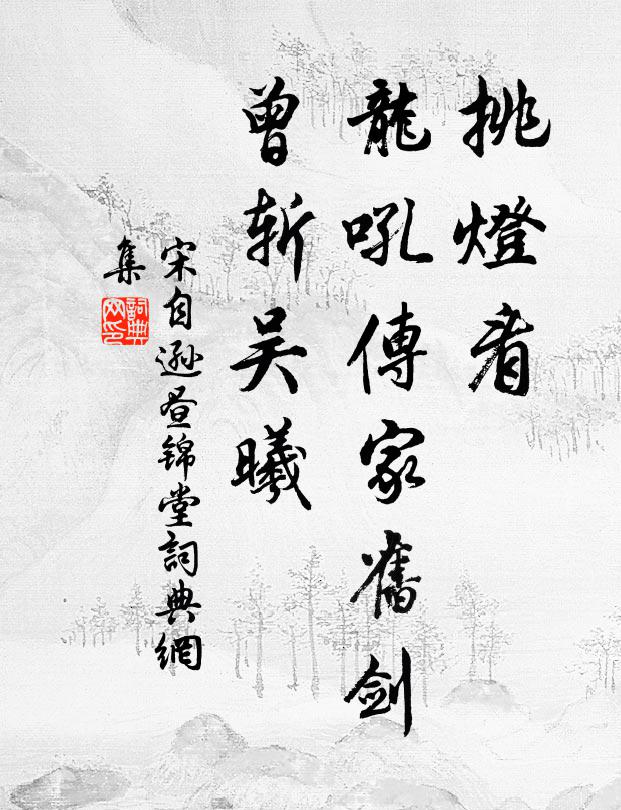 挑燈看
龍吼傳家舊劍
曾斬吴曦
宋自遜昼锦堂詞典網
集
詞典
网印